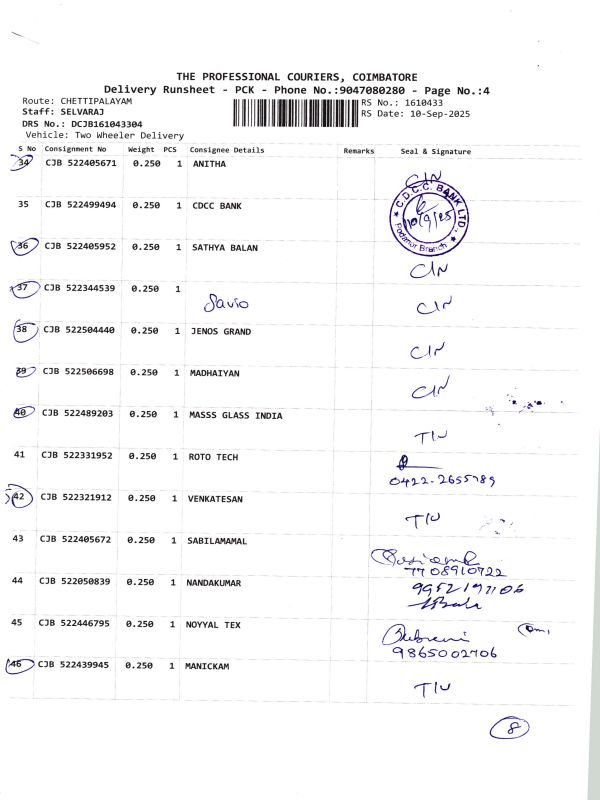 THE PROFESSIONAL COURIERS, COIMBATORE
Delivery Runsheet - PCK - Phone No.:9047080280 - Page No.:4
Route: CHETTIPALAYAM
RS No.: 1610433
Staff: SELVARAJ
RS Date: 10-Sep-2025
DRS No.: DCJB161043304
Vehicle: Two Wheeler Delivery
S No Consignment No Weight PCS Consignee Details Remarks Seal & Signature
34 CJB 522405671 0.250 1 ANITHA
C/N
35 CJB 522499494 0.250 1 CDCC BANK
C.D.C.C. BANK LTD.,
10/9/25
Podanur Branch
36 CJB 522405952 0.250 1 SATHYA BALAN
C/N
37 CJB 522344539 0.250 1
Savio C/N
38 CJB 522504440 0.250 1 JENOS GRAND
C/N
39 CJB 522506698 0.250 1 MADHAIYAN
C/N
40 CJB 522489203 0.250 1 MASSS GLASS INDIA
T/N
41 CJB 522331952 0.250 1 ROTO TECH
0422-2655789
42 CJB 522321912 0.250 1 VENKATESAN
T/N
43 CJB 522405672 0.250 1 SABILAMAMAL
7708910722
44 CJB 522050839 0.250 1 NANDAKUMAR
9952197106
45 CJB 522446795 0.250 1 NOYYAL TEX
9865002706
46 CJB 522439945 0.250 1 MANICKAM
T/N
8